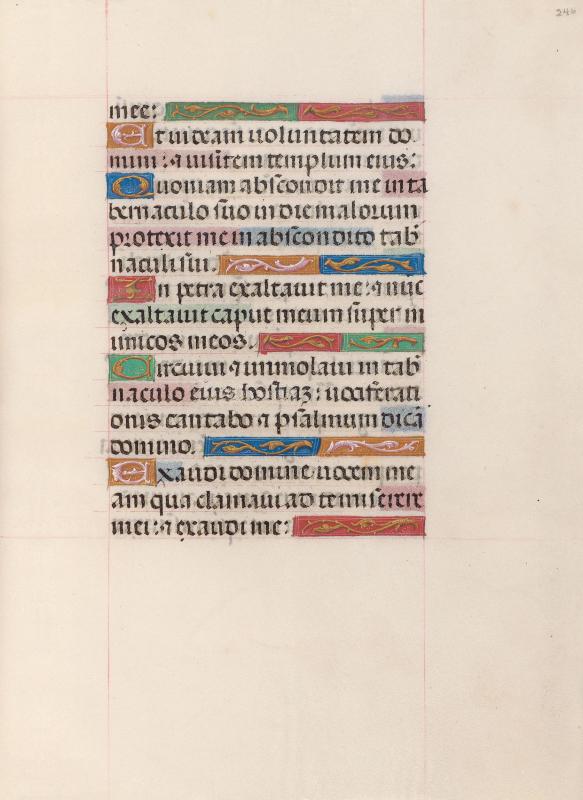 246
mee:
Et videam voluntatem do
mini: ⁊ visitem templum eius:
Quoniam abscondit me in ta
bernaculo suo in die malorum
protexit me in abscondito tab
naculi sui.
In petra exaltavit me: ⁊ nūc
exaltavit caput meum super in
imicos meos.
Circuivi ⁊ immolavi in tab
naculo eius hostiaʒ: vociferati
onis cantabo ⁊ psalmum dicā
domino.
Exaudi domine vocem me
am qua clamavi ad te miserere
mei: ⁊ exaudi me: